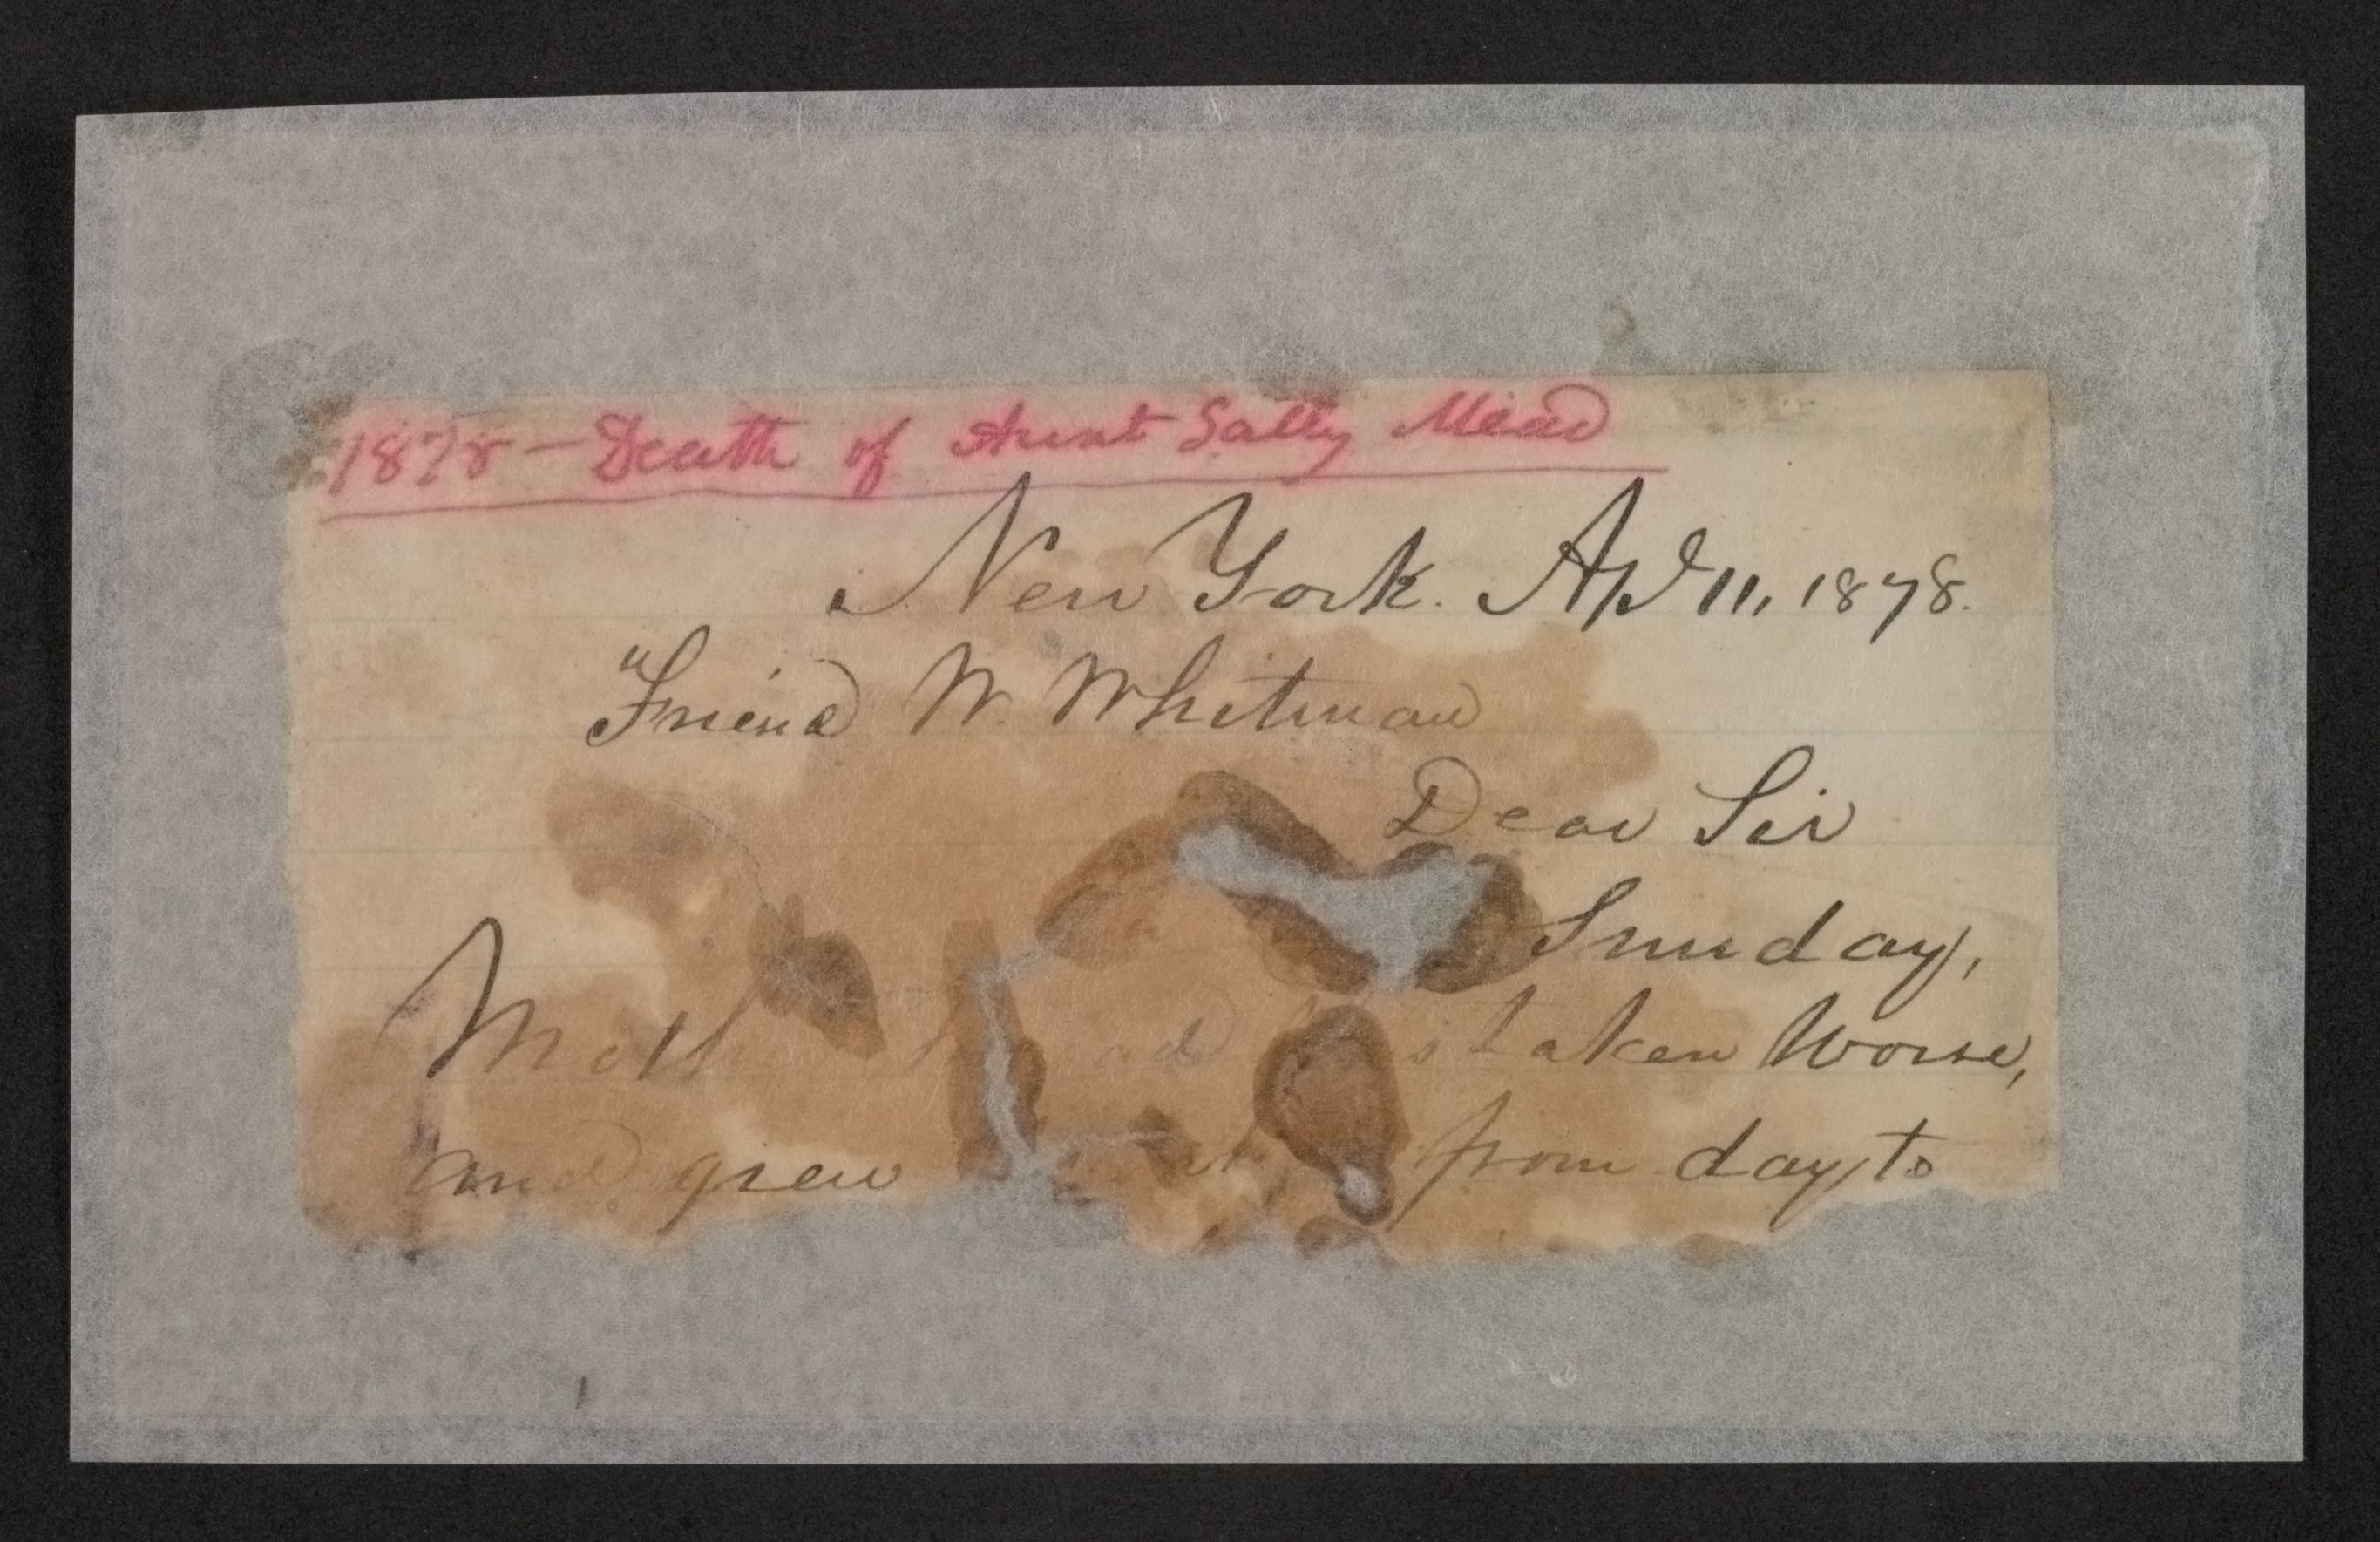 1878 – Death of Aunt Sally Mead
New York. Apl 11, 1878.
"Friend W. Whitman
Dear Sir
Sunday,
taken Worse,
and grew from day to